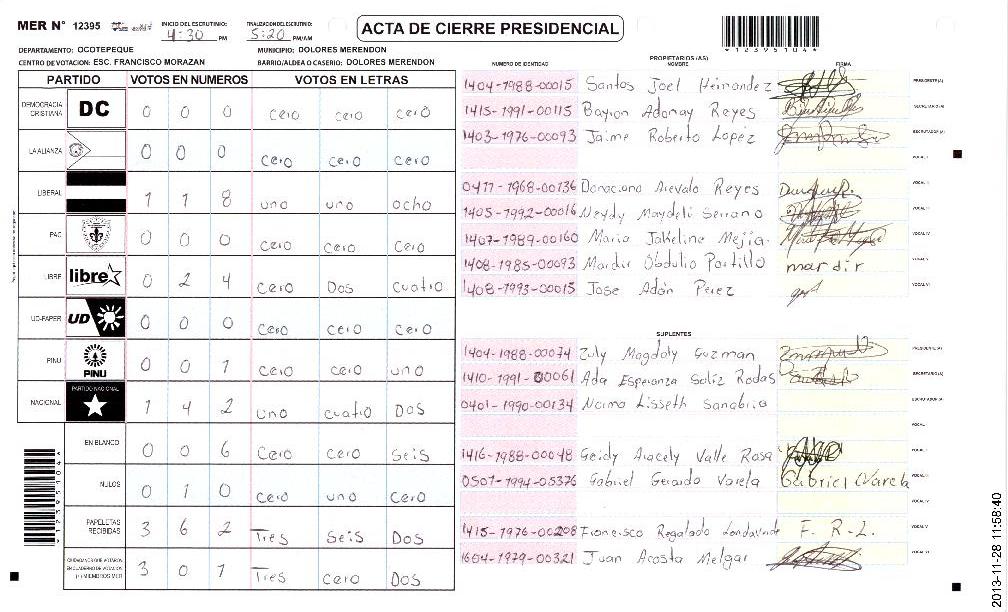 MER N° 12395
INICIO DEL ESCRUTINIO: 4:30 PM
FINALIZACION DEL ESCRUTINIO: 5:20 PM/AM
ACTA DE CIERRE PRESIDENCIAL
*12395104*
DEPARTAMENTO: OCOTEPEQUE MUNICIPIO: DOLORES MERENDON
CENTRO DE VOTACION: ESC. FRANCISCO MORAZAN BARRIO/ALDEA O CASERIO: DOLORES MERENDON
PARTIDO VOTOS EN NUMEROS VOTOS EN LETRAS
DEMOCRACIA CRISTIANA DC 0 0 0 cero cero cero
LA ALIANZA 0 0 0 cero cero cero
LIBERAL 1 1 8 uno uno ocho
PAC 0 0 0 cero cero cero
LIBRE libre 0 2 4 cero Dos cuatro
UD-FAPER UD 0 0 0 cero cero cero
PINU PINU 0 0 1 cero cero uno
NACIONAL PARTIDO NACIONAL 1 4 2 uno cuatro Dos
EN BLANCO 0 0 6 cero cero seis
NULOS 0 1 0 cero uno cero
PAPELETAS RECIBIDAS 3 6 2 Tres seis Dos
CIUDADANOS QUE VOTARON EN CUADERNO DE VOTACION (+) MIEMBROS MER 3 0 1 Tres cero Dos
*12395104*
PROPIETARIOS (AS)
NUMERO DE IDENTIDAD NOMBRE FIRMA
1404-1988-00015 Santos Joel Hernandez PRESIDENTE(A)
1415-1991-00115 Bayron Adonay Reyes SECRETARIO(A)
1403-1976-00093 Jaime Roberto Lopez ESCRUTADOR(A)
VOCAL I
0411-1968-00136 Donaciano Arevalo Reyes VOCAL II
1405-1992-00016 Neydy Maydeli Serrano VOCAL III
1407-1989-00160 Maria Jakeline Mejia VOCAL IV
1408-1985-00093 Mardir Obdulio Portillo mardir VOCAL V
1408-1993-00015 Jose Adán Perez VOCAL VI
SUPLENTES
1404-1988-00074 Zuly Magdaly Guzman PRESIDENTE(A)
1410-1991-00061 Ada Esperanza Soliz Rodas SECRETARIO(A)
0401-1990-00134 Norma Lisseth Sanabria ESCRUTADOR(A)
VOCAL I
1416-1988-00048 Geidy Aracely Valle Rosa
0501-1994-05376 Gabriel Gerardo Varela Gabriel Varela
VOCAL IV
1415-1976-00208 Francisco Regalado F. R. L. VOCAL V
1604-1979-00321 Juan Acosta Melgar VOCAL VI
2013-11-28 11:58:40